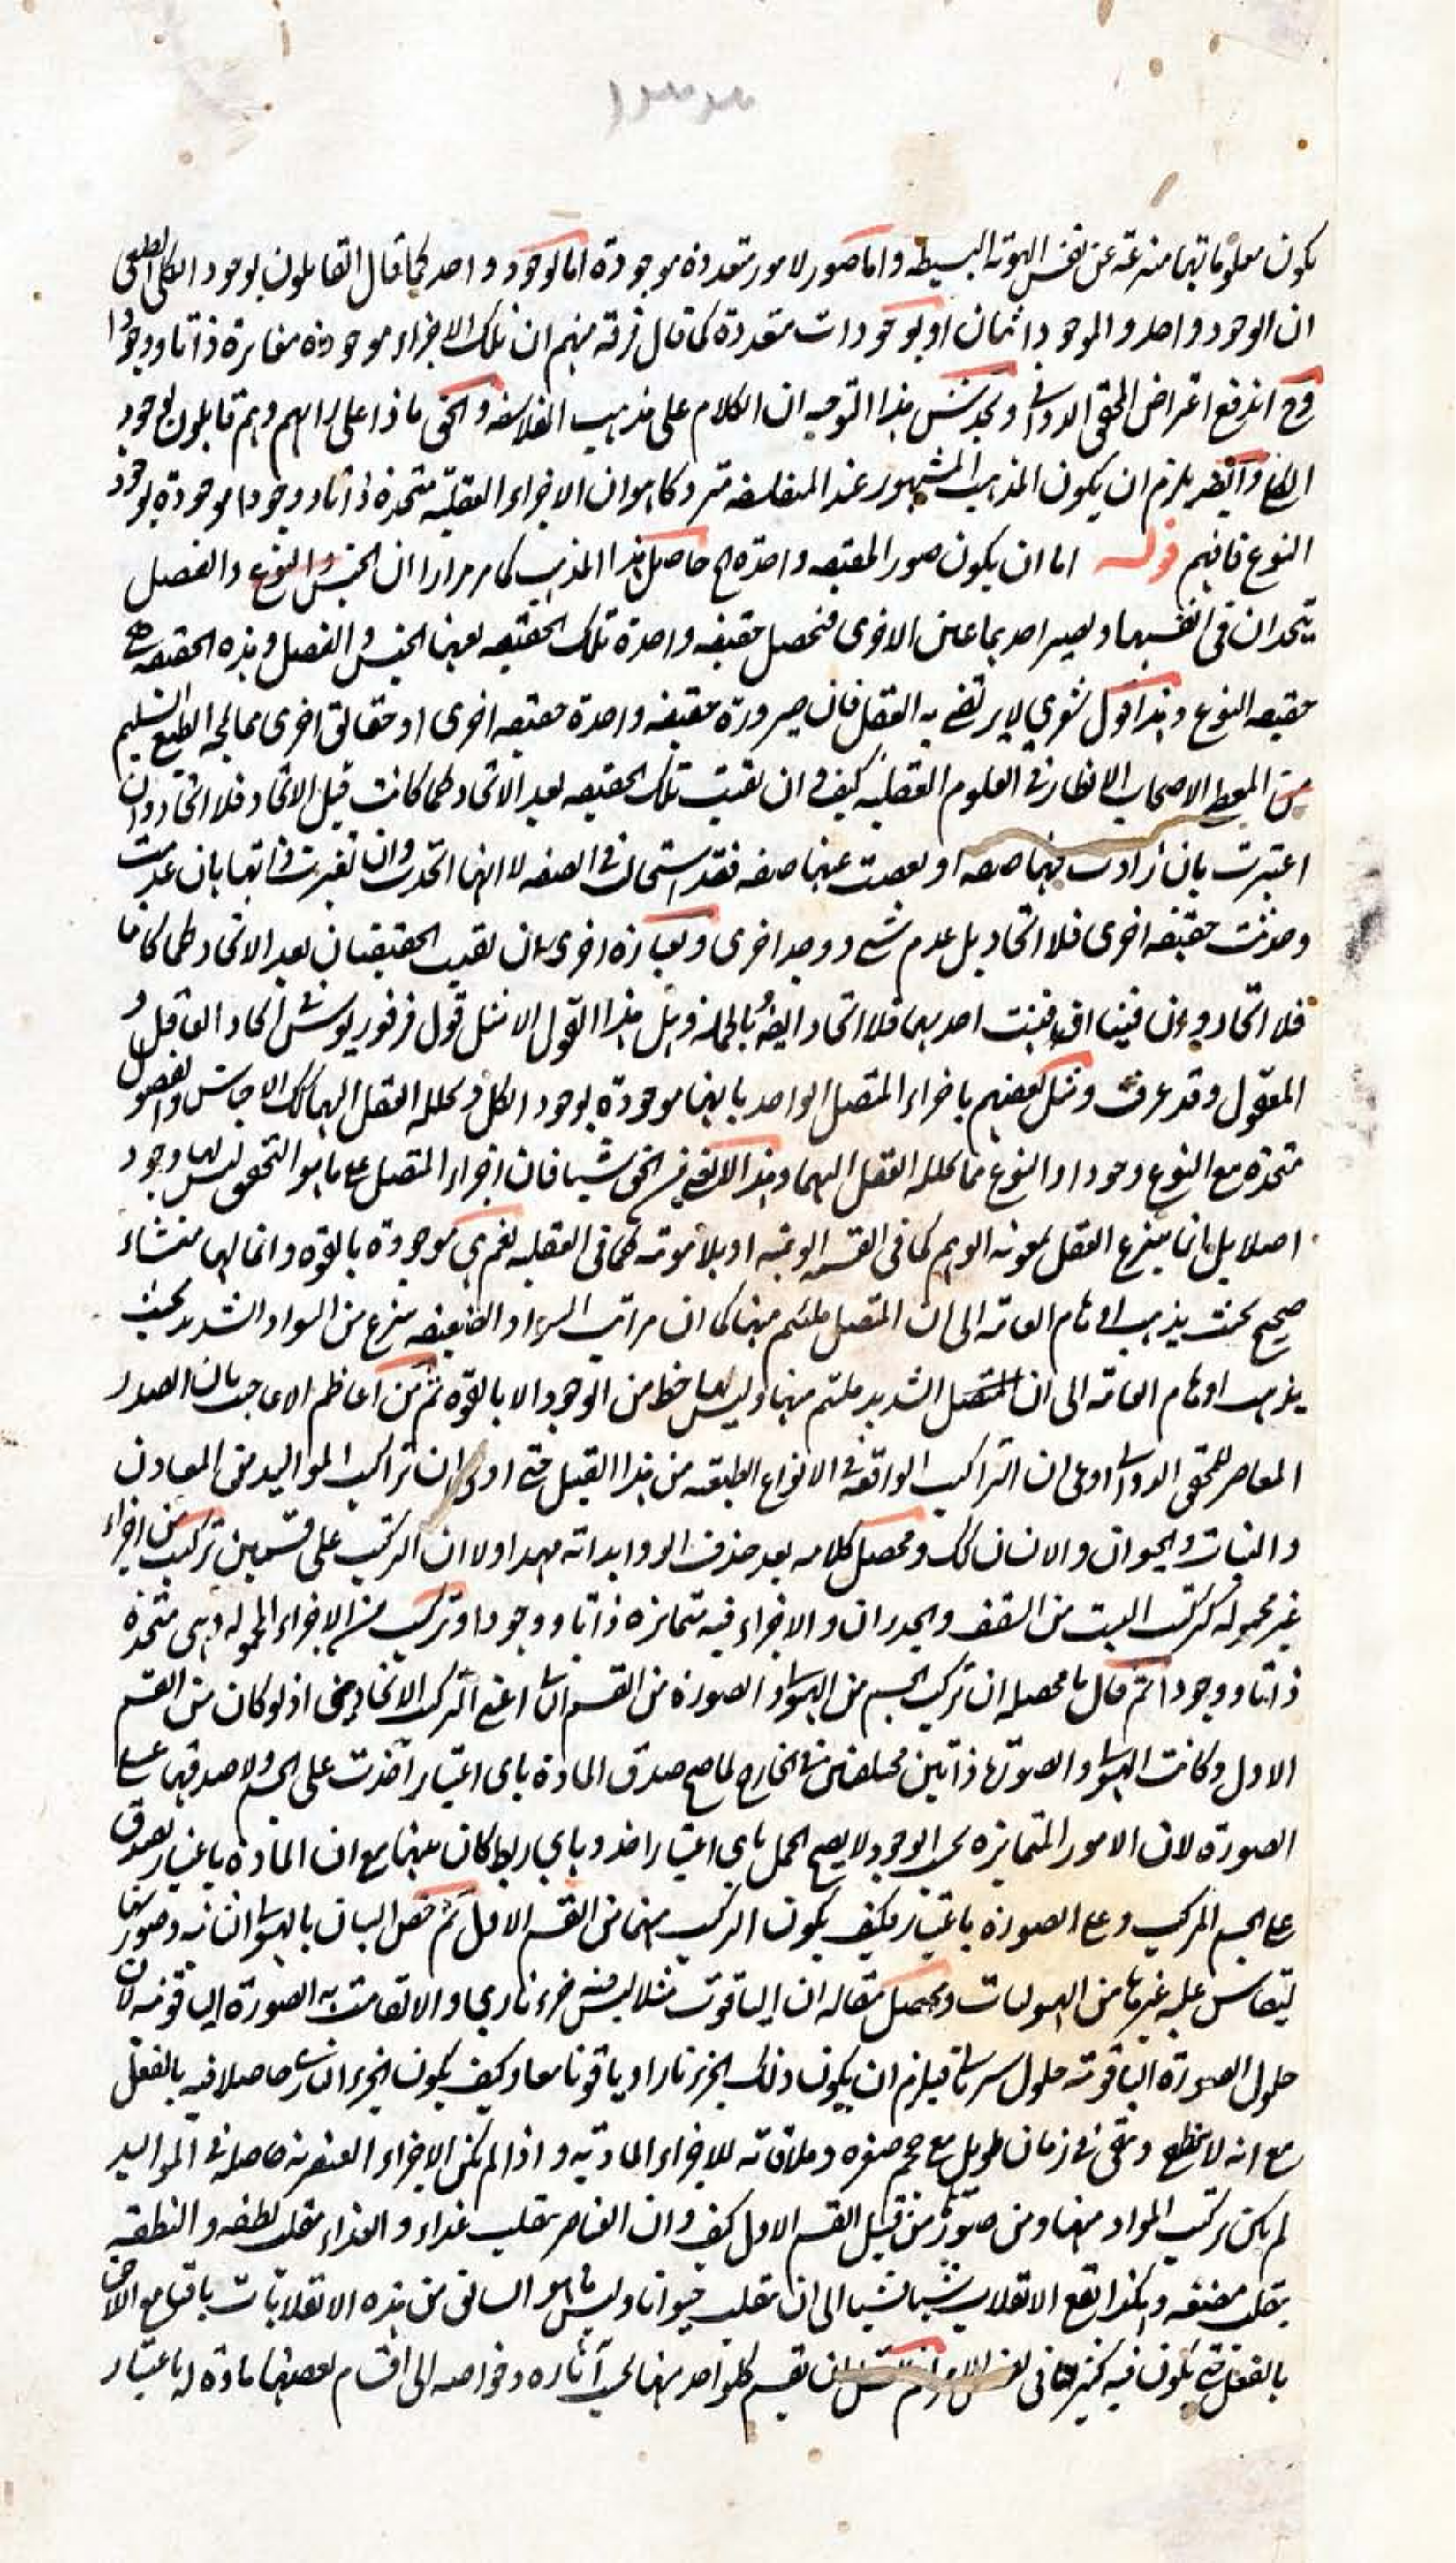 يكون معلوماتهما منتزعة عن نفس الهوية البسيطه واما صور لامور متعددة موجودة اما لوجود واحد كما قال القائلون بوجود الكلى الطبعى
ان الوجود واحد والموجود اثنان او بوجودات متعددة كما قال فرقة منهم ان تلك الاجزاء موجودة مغايرة ذاتا ووجودا
وح اندفع اعتراض المحقق الدوانى ويخدش هذا التوجيه ان الكلام على مذهب الفلاسفه والحق ماذا على رايهم وهم قايلون بوجود
الكلى وايضر يلزم ان يكون المذهب المشهور عند المتفلسفه متروكا هو ان الاجزاء العقلية متحدة ذاتا ووجودا موجودة بوجود
النوع فافهم قوله اما ان يكون صور الحقيقه واحدة الح حاصل هذا المذهب كما مر مرارا ان الجنس والنوع والفصل
يتحدان فى انفسهما ويصير احدهما عين الاخرى فتحصل حقيقه واحدة تلك الحقيقه بعينها الجنس والفصل وهذه الحقيقه هى
حقيقه النوع وهذا قول شعري لا يرتضى به العقل فان صيرورة حقيقه واحدة حقيقه اخرى او حقائق اخرى مما يمجه الطبع السليم
من المعطى لاصحاب الانظار فى العلوم العقليه كيف وان بقيت تلك الحقيقه بعد الاتحاد كما كانت قبل الاتحاد فلا اتحاد وان
اعتبرت بان زادت فيهما صفه او نقصت عنهما صفه فقد استحالت فى الصفه لا انها اتحدت وان تغيرت فى ذاتها بان عدمت
وحدثت حقيقه اخرى فلا اتحاد بل عدم شى ووجد اخرى وبعبارة اخرى ان بقيت الحقيقتان بعد الاتحاد كما كانتا
فلا اتحاد وان فنيتا او فنيت احدهما فلا اتحاد ايضر بالجملة وهل هذا القول الا مثل قول فرفوريوس فى اتحاد العاقل و
المعقول وقد عرفت ومثل بعضهم باجزاء المتصل الواحد بانها موجودة بوجود الكل ويحلله العقل اليها كك الاجناس والفصول
متحدة مع النوع وجودا والنوع مما يحلله العقل اليهما وهذا لا يغنى من الحق شيئا فان اجزاء المتصل على ما هو التحقيق ليس لها وجود
اصلا بل انما ينتزع العقل بمعونة الوهم كما فى القسمة الوهميه او بلا معونته كما فى العقليه نعم هى موجودة بالقوة وانما لها منشاء
صحيح بحيث يذهب اوهام العامة الى ان المتصل ملتئم منها كما ان مراتب السواد الضعيفه ينتزع من السواد الشديد بحيث
يذهب اوهام العامة الى ان المتصل الشديد ملتئم منها وليس لها حظ من الوجود الا بالقوة ثم من اعاظم الاعاجيب ان الصدر
المعاصر للمحقق الدوانى ادعى ان التراكيب الواقعة فى الانواع الطبعيه من هذا القبيل حتى ادعى ان تراكيب المواليد من المعادن
والنبات والحيوان والانسان كك ومحصل كلامه بعد حذف الزوايد انه مهد اولا ان التركيب على قسمين تركيب من اجزاء
غير محموله كتركيب البيت من السقف والجدران والاجزاء فيه متمايزة ذاتا ووجودا وتركيب من الاجزاء المحموله وهى متحدة
ذاتا ووجودا ثم قال ما محصله ان تركيب الجسم من الهيولى والصورة من القسم الثانى اعنى التركيب الاتحادى اذ لو كان من القسم
الاول وكانت الهيولى والصورة ذاتين مختلفتين فى الخارج لما صح صدق المادة باى اعتبار اخذت على الجسم ولا صدقها على
الصورة لان الامور المتمايزة بحسب الوجود لا يصح الحمل باى اعتبار اخذ وباى ربط كان بينها مع ان المادة باعتبار يصدق
على الجسم المركب وعلى الصورة باعتبار فكيف يكون التركيب منهما من القسم الاول ثم خص البيان بالهيولى الثانيه وصورتها
ليقاس عليه غيرها من الهيوليات ومحصل مقاله ان الياقوت مثلا ليس فيه جزء ناري والا لقامت به الصورة الياقوتيه لان
حلول الصورة الياقوتيه حلول سريانى فيلزم ان يكون ذلك الجزء نارا وياقوتا معا وكيف يكون الجزء النارى حاصلا فيه بالفعل
مع انه لا ينطفع ويبقى فى زمان طويل مع حجم صغره وملاقاته للاجزاء المادية واذا لم يكن الاجزاء العنصريه حاصلة فى المواليد
لم يكن تركيب المواد منها ومن صورة من قبيل القسم الاول كيف وان العناصر ينقلب غذاء والغذاء ينقلب نطفه والنطفة
ينقلب مضغه وهكذا يقع الانقلاب شيئا فشيئا الى ان ينقلب حيوانا وليس ما هو السابق من هذه الانقلابات باقيا مع اللاحق
بالفعل حتى يكون فيه كثرة فى نفس الامر ثم ان تقسيم كلواحد منها بحسب آثاره وخواصه الى اقسام بعضها مادة له باعتبار